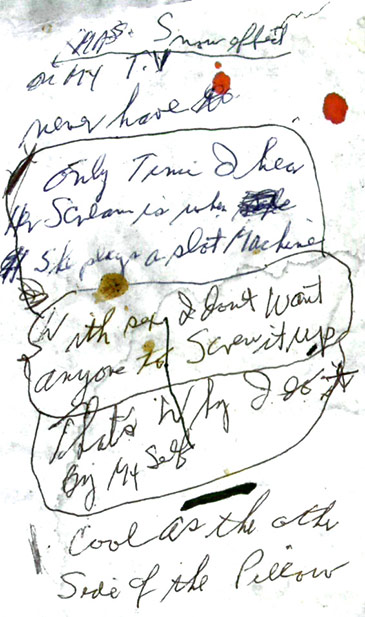 Snow effect
on MY T.V
never have
Only Time I hear
Her Scream is when
She plays a slot Machine
With sex I dont Want
anyone to Screw it up
That's Why I do it
By My Self
Cool as the other
Side of the Pillow